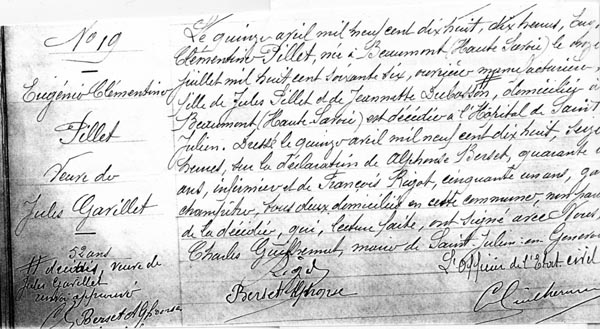 No 19
Eugénie Clémentine
Fillet
Veuve de
Jules Gavillet
52 ans
# décédée, veuve de
Jules Gavillet
renvoi approuvé
Berset Alphonse
Le quinze avril mil neuf cent dix huit, dix heures, Eugénie
Clémentine Fillet, née à Beaumont (Haute Savoie) le onze
juillet mil huit cent soixante six, ouvrière manufacturière,
fille de Jules Fillet et de Jeannette Dubosson, domiciliée à
Beaumont (Haute Savoie) est décédée à l'Hôpital de Saint
Julien. Dressé le quinze avril mil neuf cent dix huit, seize
heures, sur la déclaration de Alphonse Berset, quarante
ans, infirmier et de François Rigot, cinquante un ans, garde
champêtre, tous deux domiciliés en cette commune, non parents
de la décédée, qui, lecture faite, ont signé avec Nous,
Charles maire de Saint Julien en Genevois
L'Officier de l'Etat civil
Rigot
Berset Alphonse